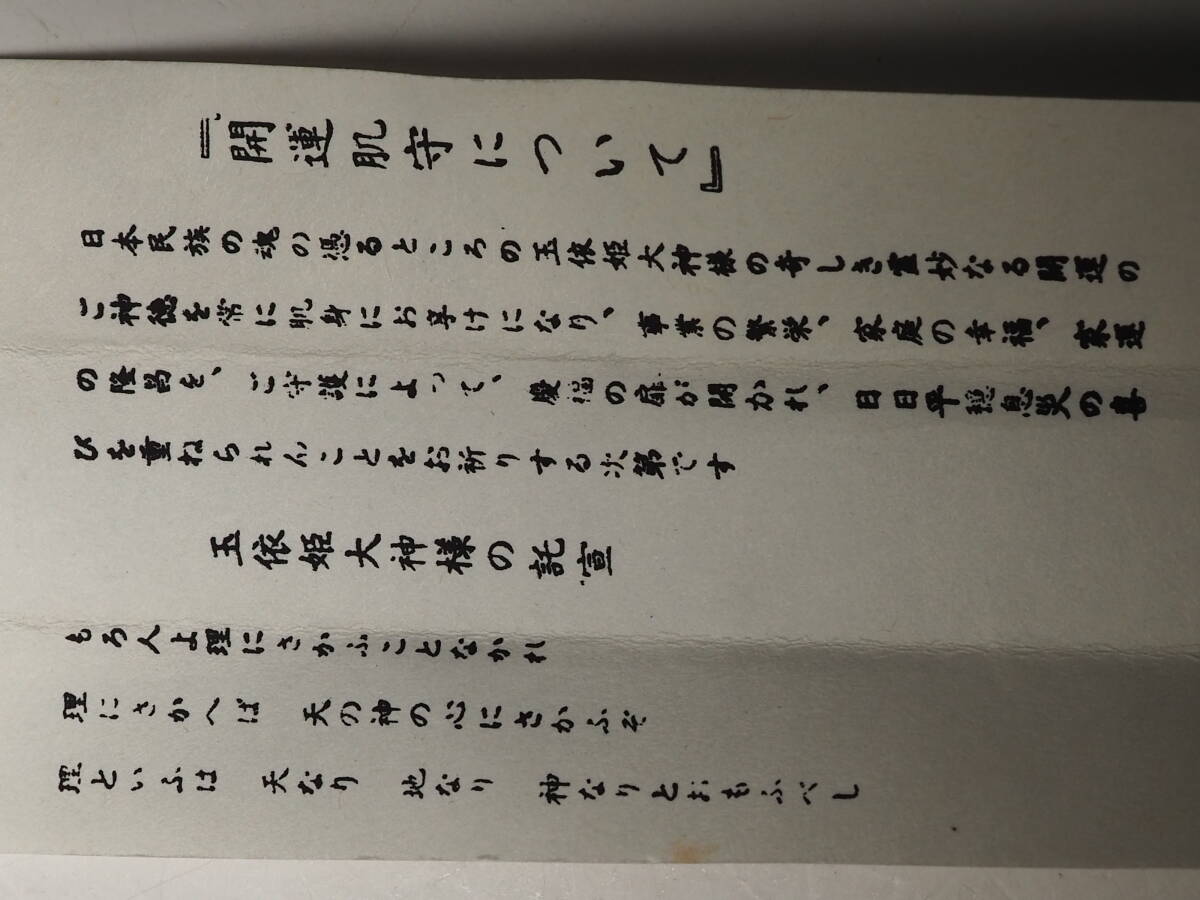 『開運肌守について』
日本民族の魂の憑るところの玉依姫大神様の奇しき霊妙なる開運の
ご神徳を常に肌身にお享けになり、事業の繁栄、家庭の幸福、家運
の隆昌を、ご守護によって、慶福の扉が開かれ、日日平穏息災の喜
びを重ねられんことをお祈りする次第です
玉依姫大神様の託宣
もろ人よ理にさかふことなかれ
理にさかへば 天の神の心にさかふぞ
理といふは 天なり 地なり 神なりとおもふべし